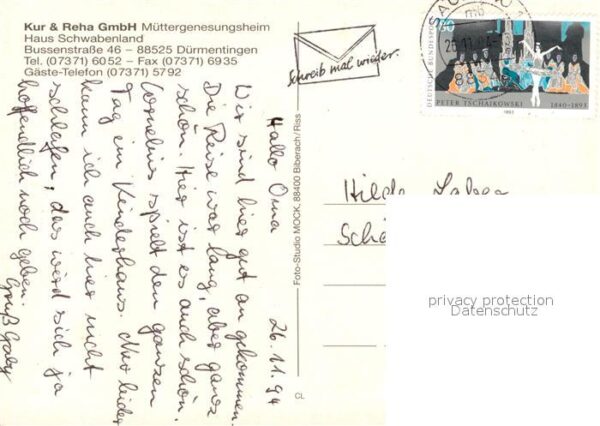 Kur & Reha GmbH Müttergenesungsheim
Haus Schwabenland
Bussenstraße 46 – 88525 Dürmentingen
Tel. (07371) 6052 – Fax (07371) 6935
Gäste-Telefon (07371) 5792
Schreib mal wieder.
DEUTSCHE BUNDESPOST
80
PETER TSCHAIKOWSKI 1840-1893
1993
Foto-Studio MOCK, 88400 Biberach/Riss
CL
26.11.94
Hallo Oma
Wir sind hier gut angekommen.
Die Reise war lang, aber ganz
schön. Hier ist es auch schön.
Cornelius spielt den ganzen
Tag im Kinderhaus. Nur leider
kann ich auch hier nicht
schlafen, das wird sich ja
hoffentlich noch geben.
Gruß Gaby
Hilde
privacy protection
Datenschutz